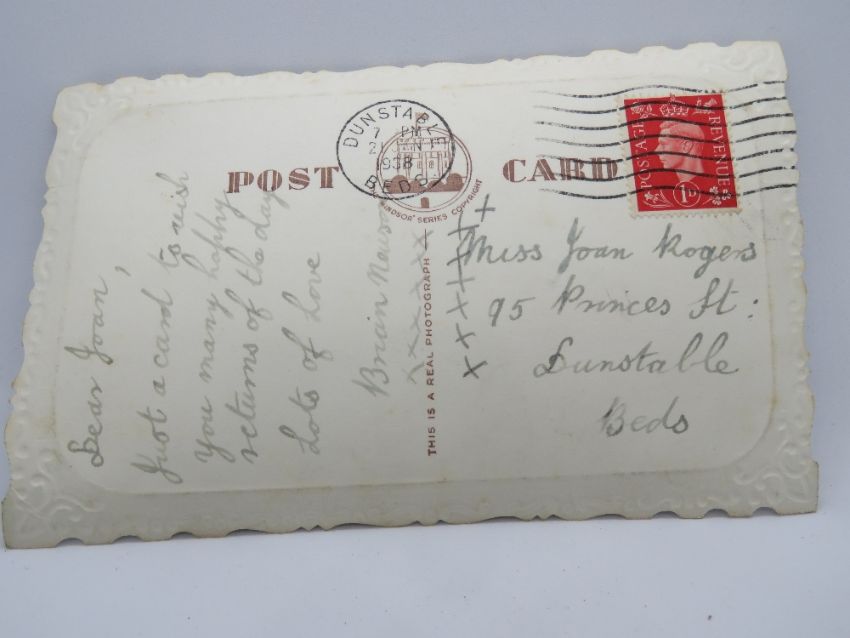 POST CARD
DUNSTABLE
7 PM
1938
BEDS
"WINDSOR" SERIES COPYRIGHT
THIS IS A REAL PHOTOGRAPH
POSTAGE
REVENUE
1D
Dear Joan,
Just a card to wish
you many happy
returns of the day
Lots of Love
Brian
xxxxxx
xxxxxxxx
Miss Joan Rogers
95 Princes St:
Dunstable
Beds